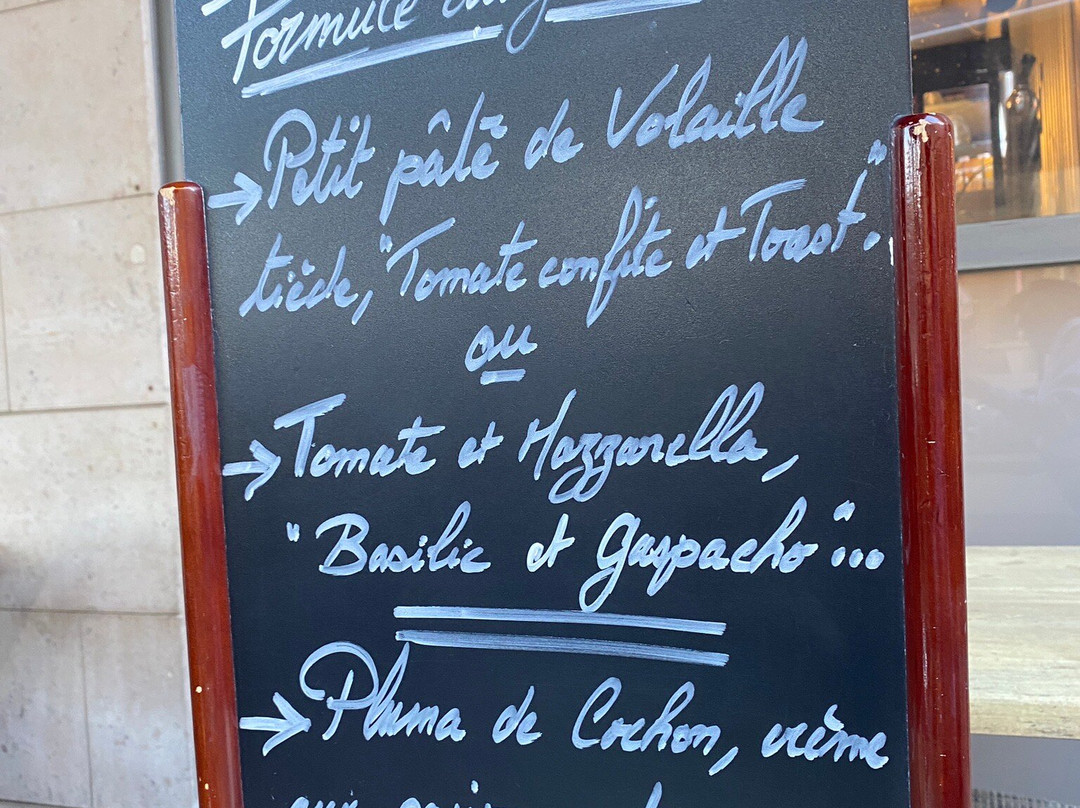 Formule
→ Petit pâté de Volaille
tiède, "Tomate confite et Toast".
ou
→ Tomate et Mozzarella,
"Basilic et Gaspacho"...
→ Pluma de Cochon, crème
aux